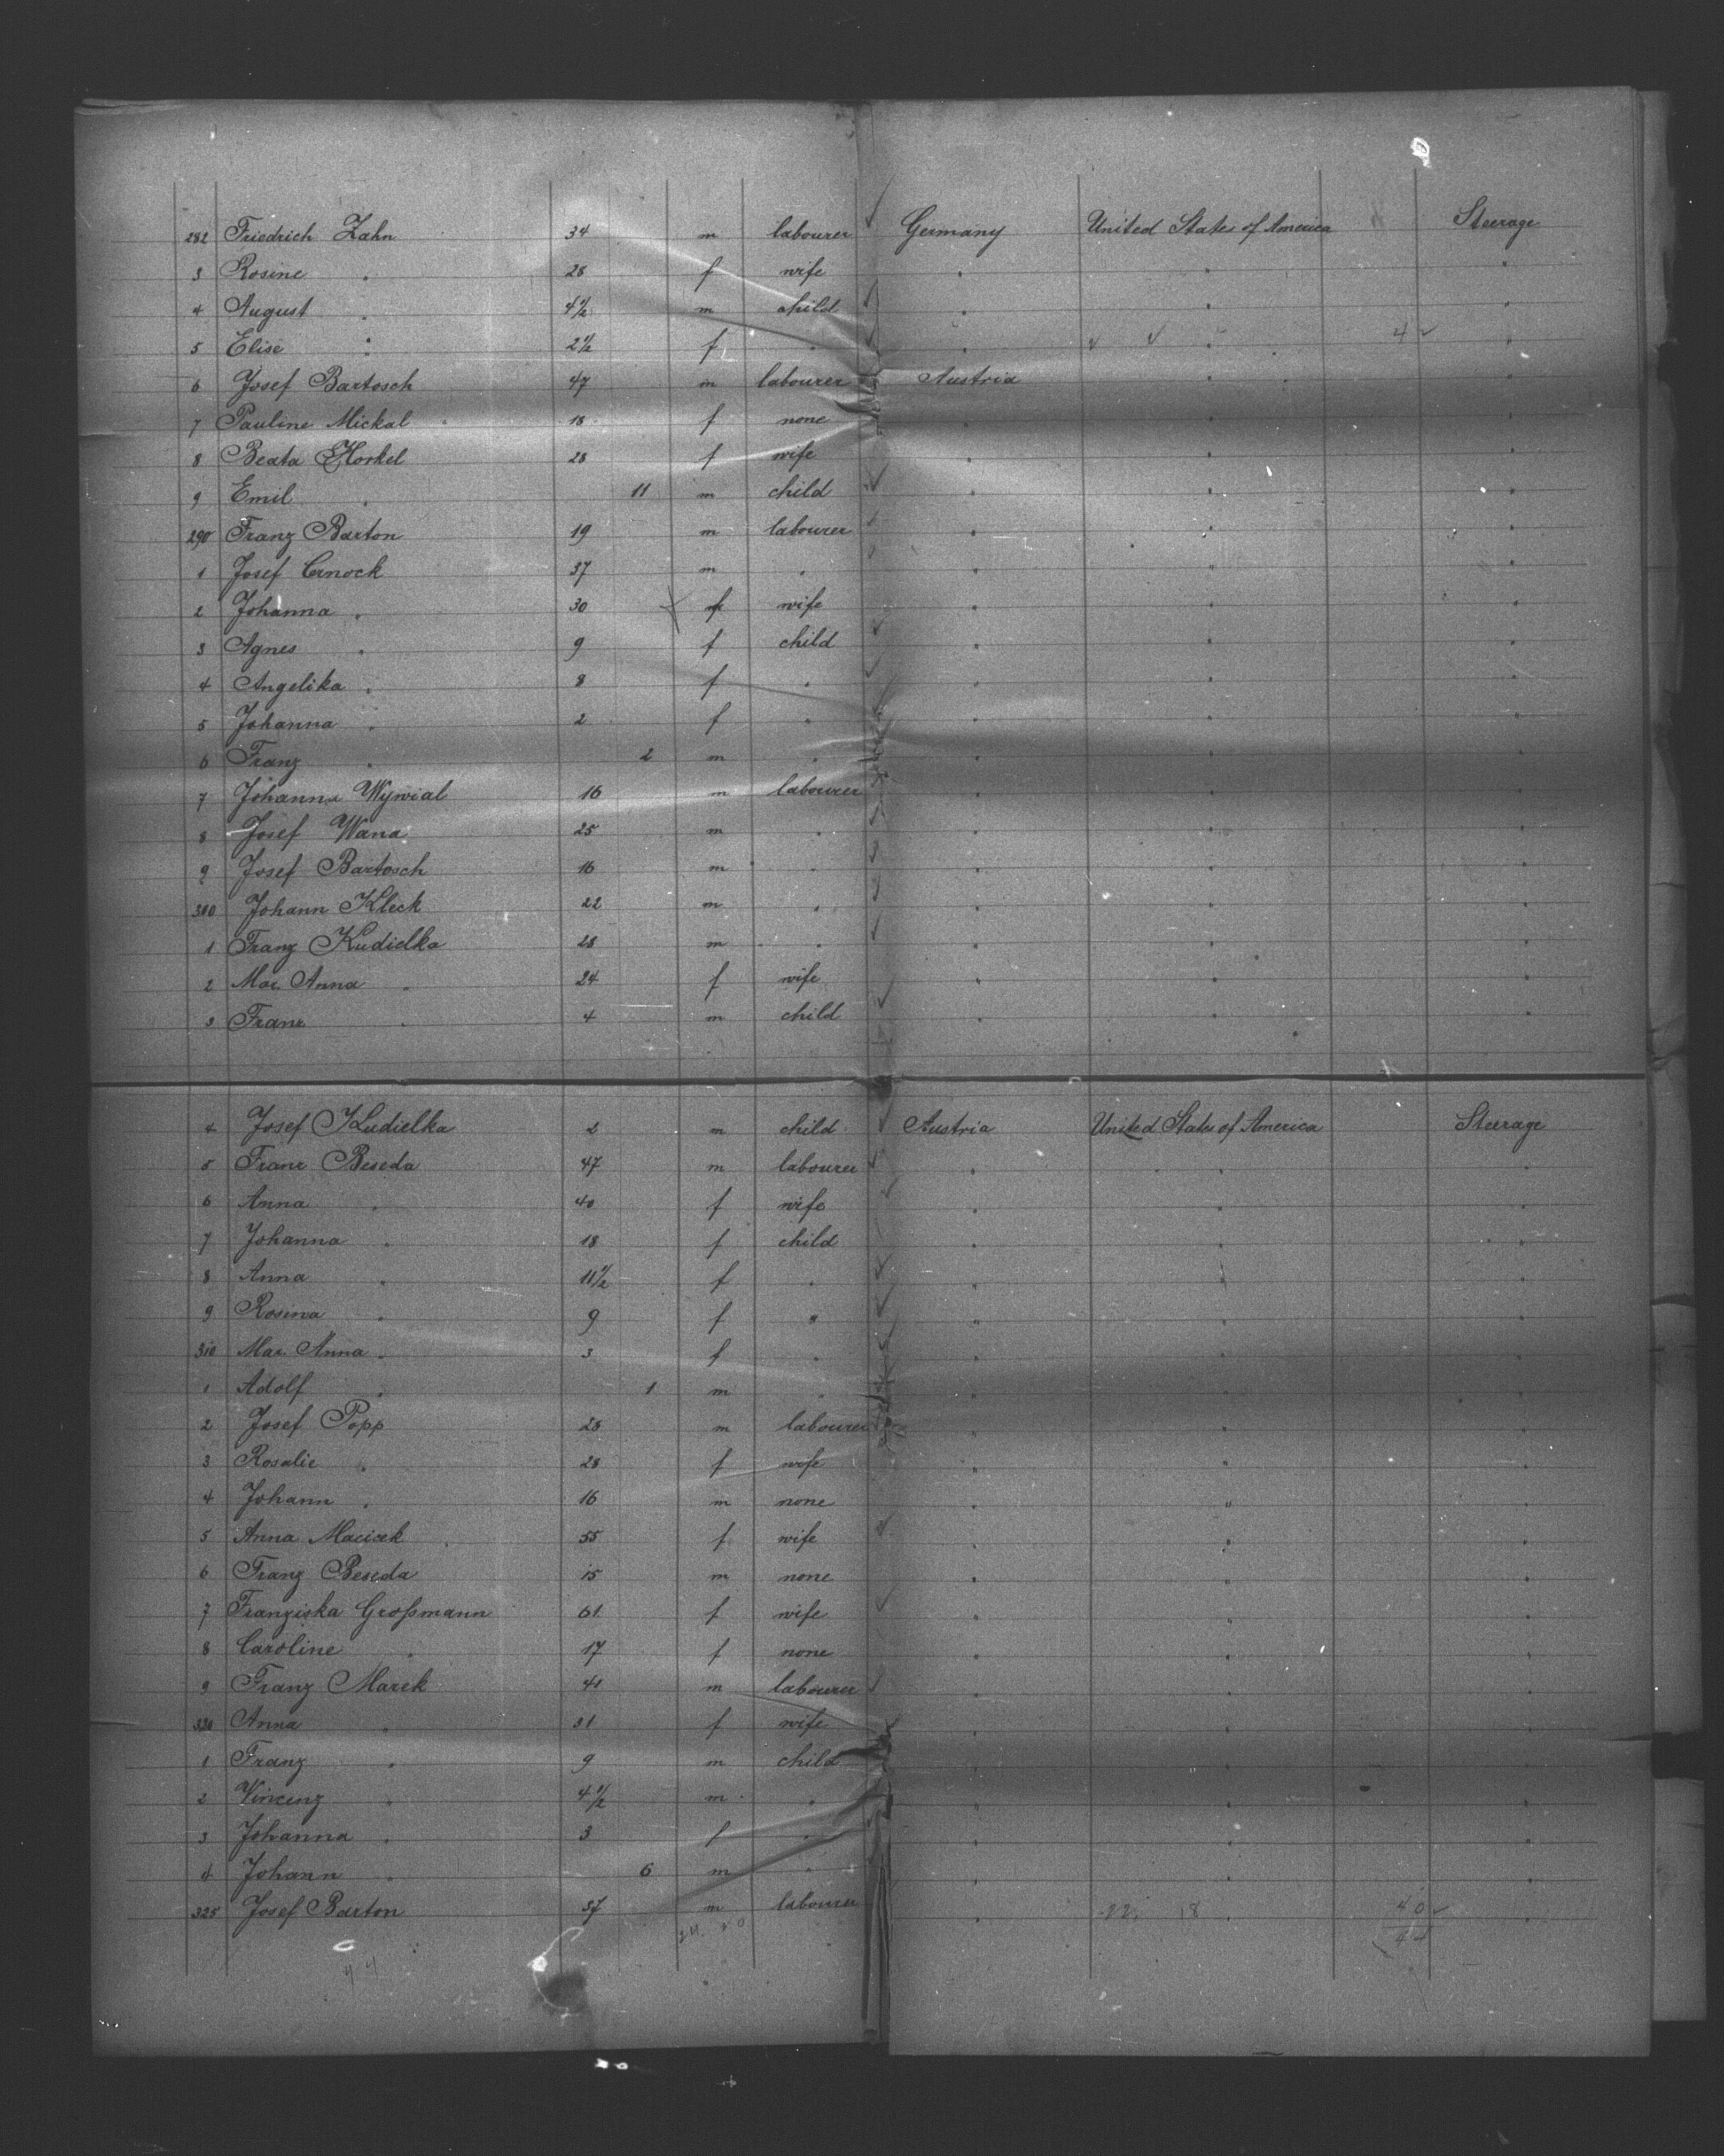 282 Friedrich Zahn 34 m labourer Germany United States of America Steerage
3 Rosine " 28 f wife " " "
4 August " 4 1/2 m child " " "
5 Elise " 2 1/2 f " " " 4 "
6 Josef Bartosch 47 m labourer Austria " "
7 Pauline Mickal 18 f none " " "
8 Beata Horkel 28 f wife " " "
9 Emil " 11 m child " " "
290 Franz Barton 19 m labourer " " "
1 Josef Cernock 37 m " " " "
2 Johanna " 30 f wife " " "
3 Agnes " 9 f child " " "
4 Angelika " 8 f " " " "
5 Johanna " 2 f " " " "
6 Franz " 2 m " " " "
7 Johanna Wywial 16 m labourer " " "
8 Josef Wana 25 m " " " "
9 Josef Bartosch 16 m " " " "
300 Johann Kleck 22 m " " " "
1 Franz Kudielka 28 m " " " "
2 Mar. Anna " 24 f wife " " "
3 Franz " 4 m child " " "
4 Josef Kudielka 2 m child Austria United States of America Steerage
5 Franz Beseda 47 m labourer " " "
6 Anna " 40 f wife " " "
7 Johanna " 18 f child " " "
8 Anna " 11 1/2 f " " " "
9 Rosina " 9 f " " " "
310 Mar. Anna " 3 f " " " "
1 Adolf " 1 m " " " "
2 Josef Popp 28 m labourer " " "
3 Rosalie " 28 f wife " " "
4 Johann " 16 m none " " "
5 Anna Macicek 55 f wife " " "
6 Franz Beseda 15 m none " " "
7 Franziska Großmann 61 f wife " " "
8 Caroline " 17 f none " " "
9 Franz Marek 41 m labourer " " "
320 Anna " 31 f wife " " "
1 Franz " 9 m child " " "
2 Vincenz " 4 1/2 m " " " "
3 Johanna " 3 f " " " "
4 Johann " 6 m " " " "
325 Josef Barton 37 m labourer " 22 18 " 40 "
44
44